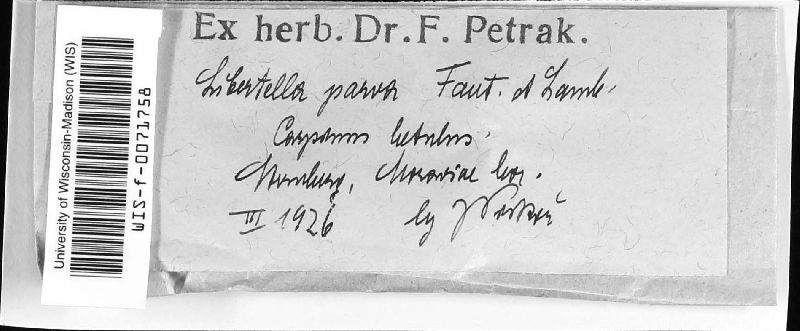 Ex herb. Dr. F. Petrak.
Libertella parva Faut. et Lamb.
Carpinus betulus.
Moraviae bor.
III 1926 lg J
University of Wisconsin-Madison (WIS)
WIS-f-0071758